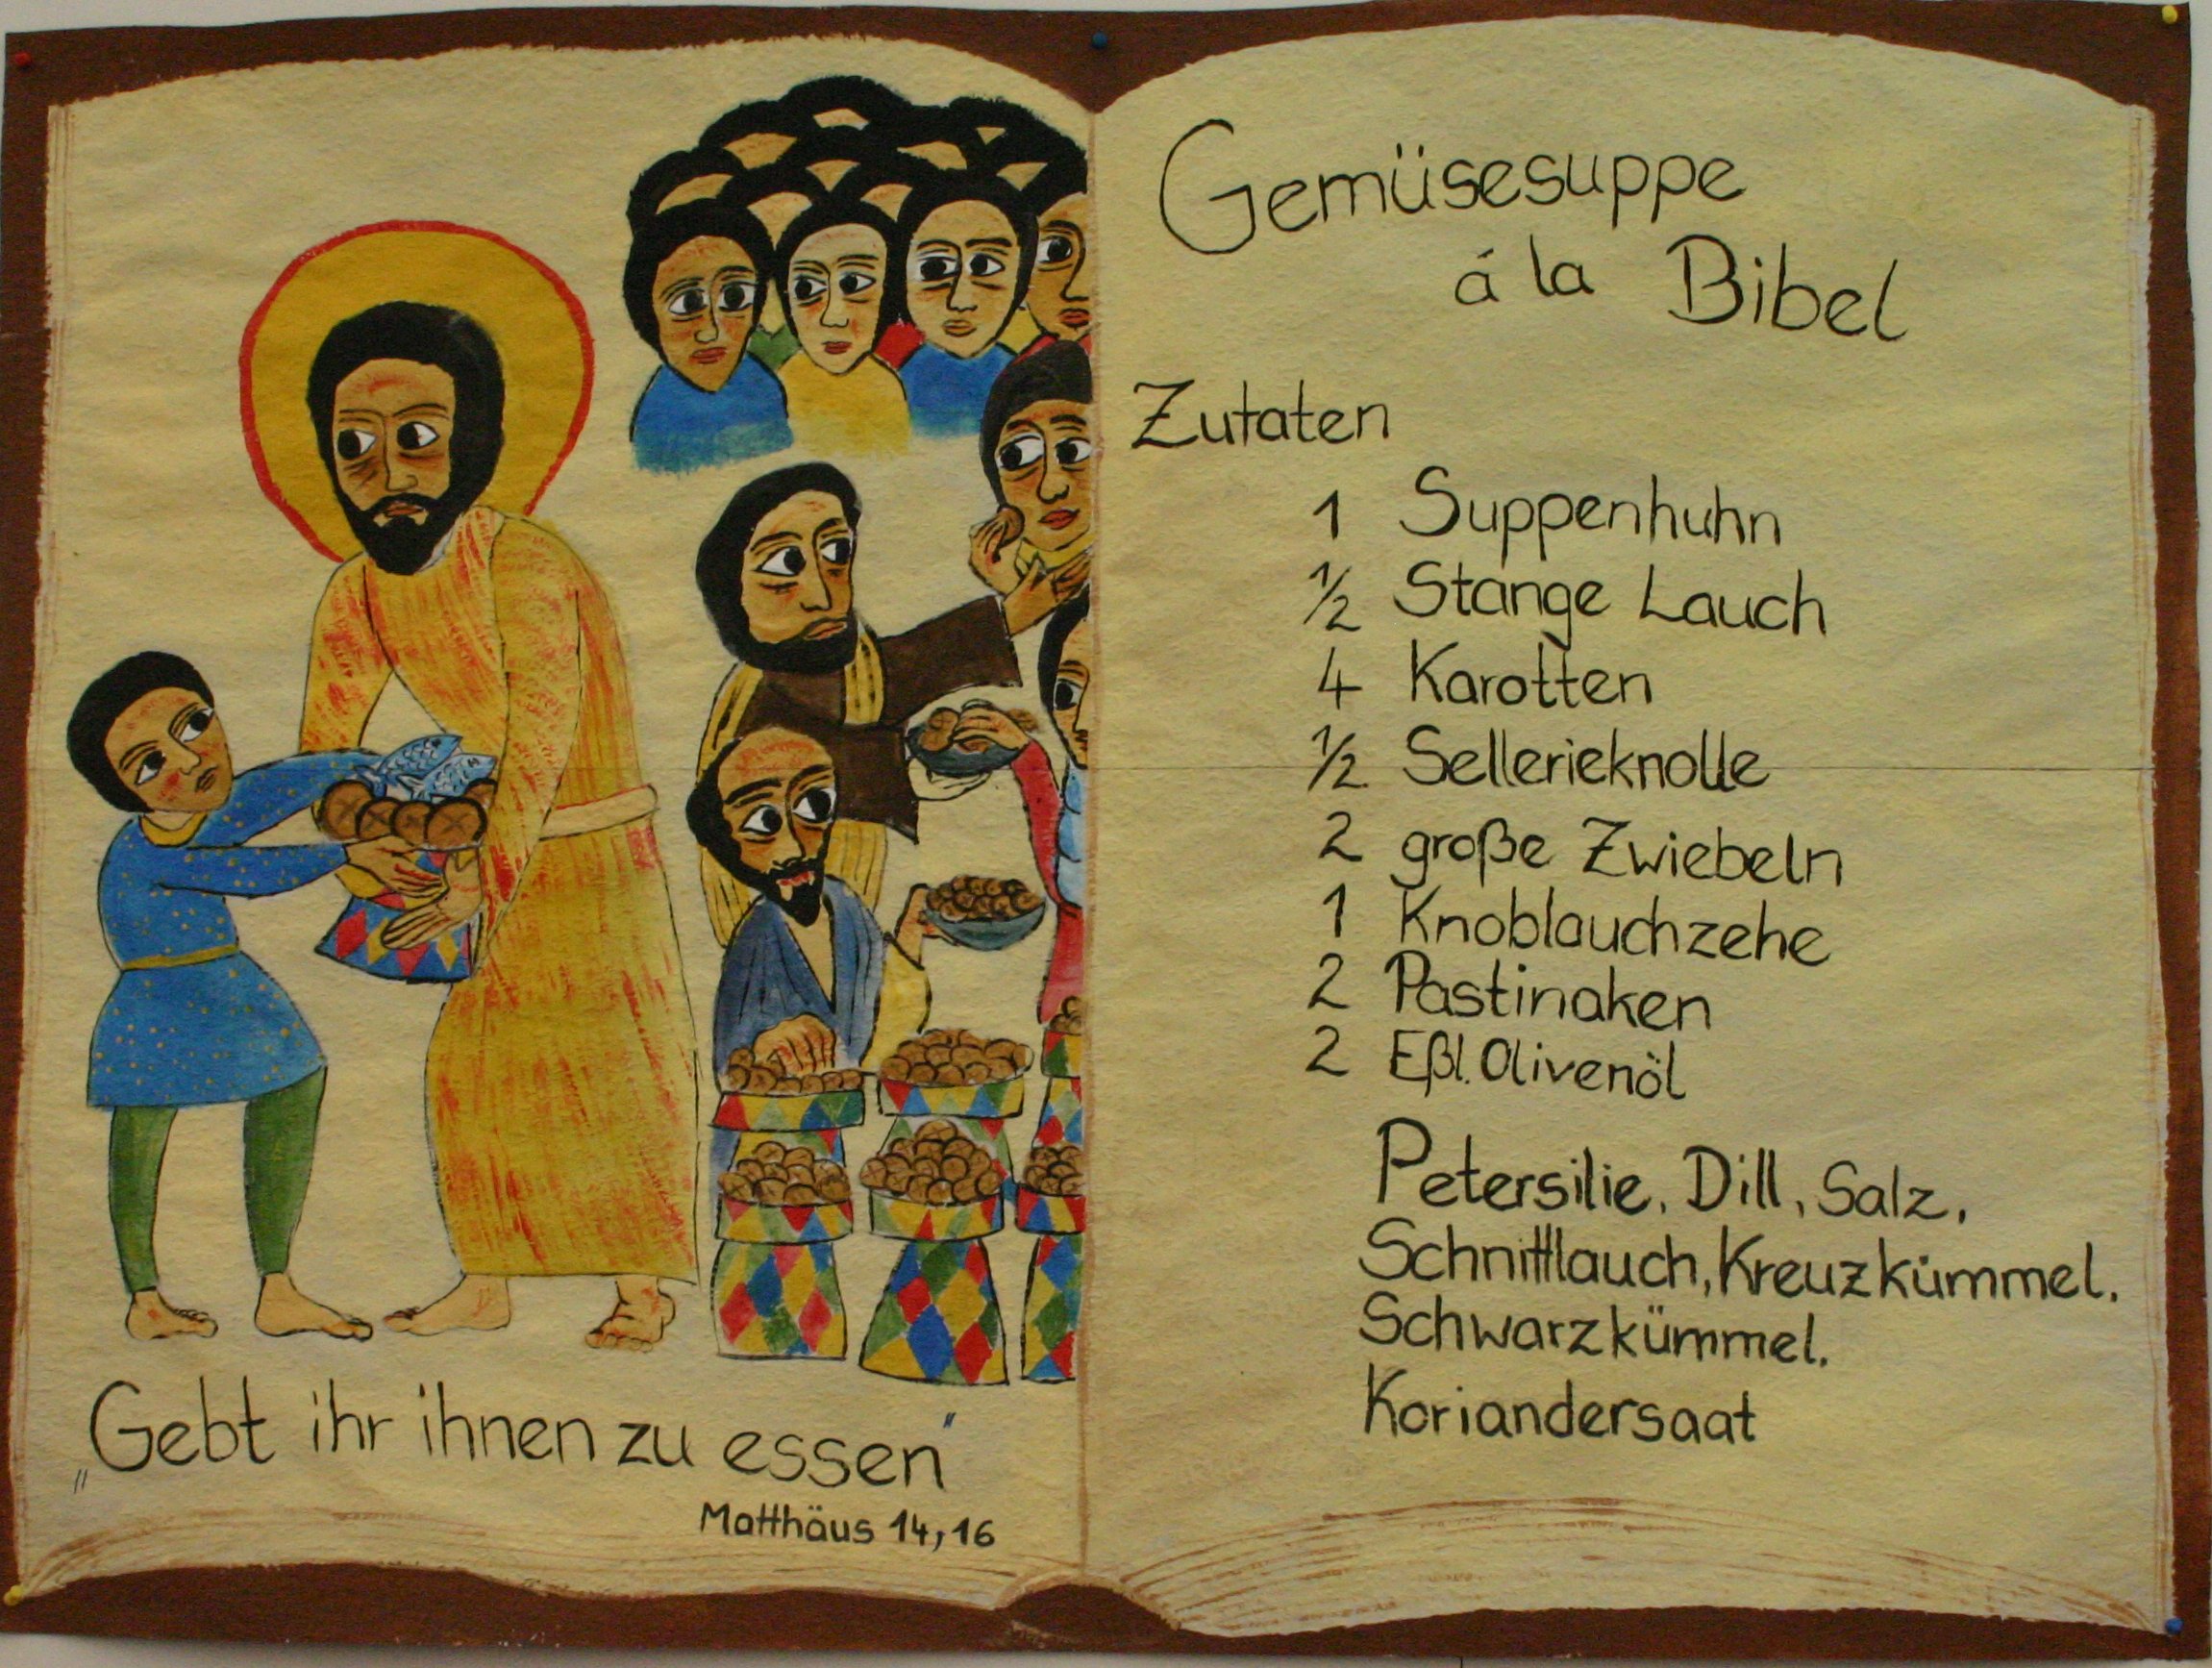 „Gebt ihr ihnen zu essen“
Matthäus 14,16
Gemüsesuppe
á la Bibel
Zutaten
1 Suppenhuhn
½ Stange Lauch
4 Karotten
½ Sellerieknolle
2 große Zwiebeln
1 Knoblauchzehe
2 Pastinaken
2 Eßl. Olivenöl
Petersilie, Dill, Salz,
Schnittlauch, Kreuzkümmel,
Schwarzkümmel,
Koriandersaat